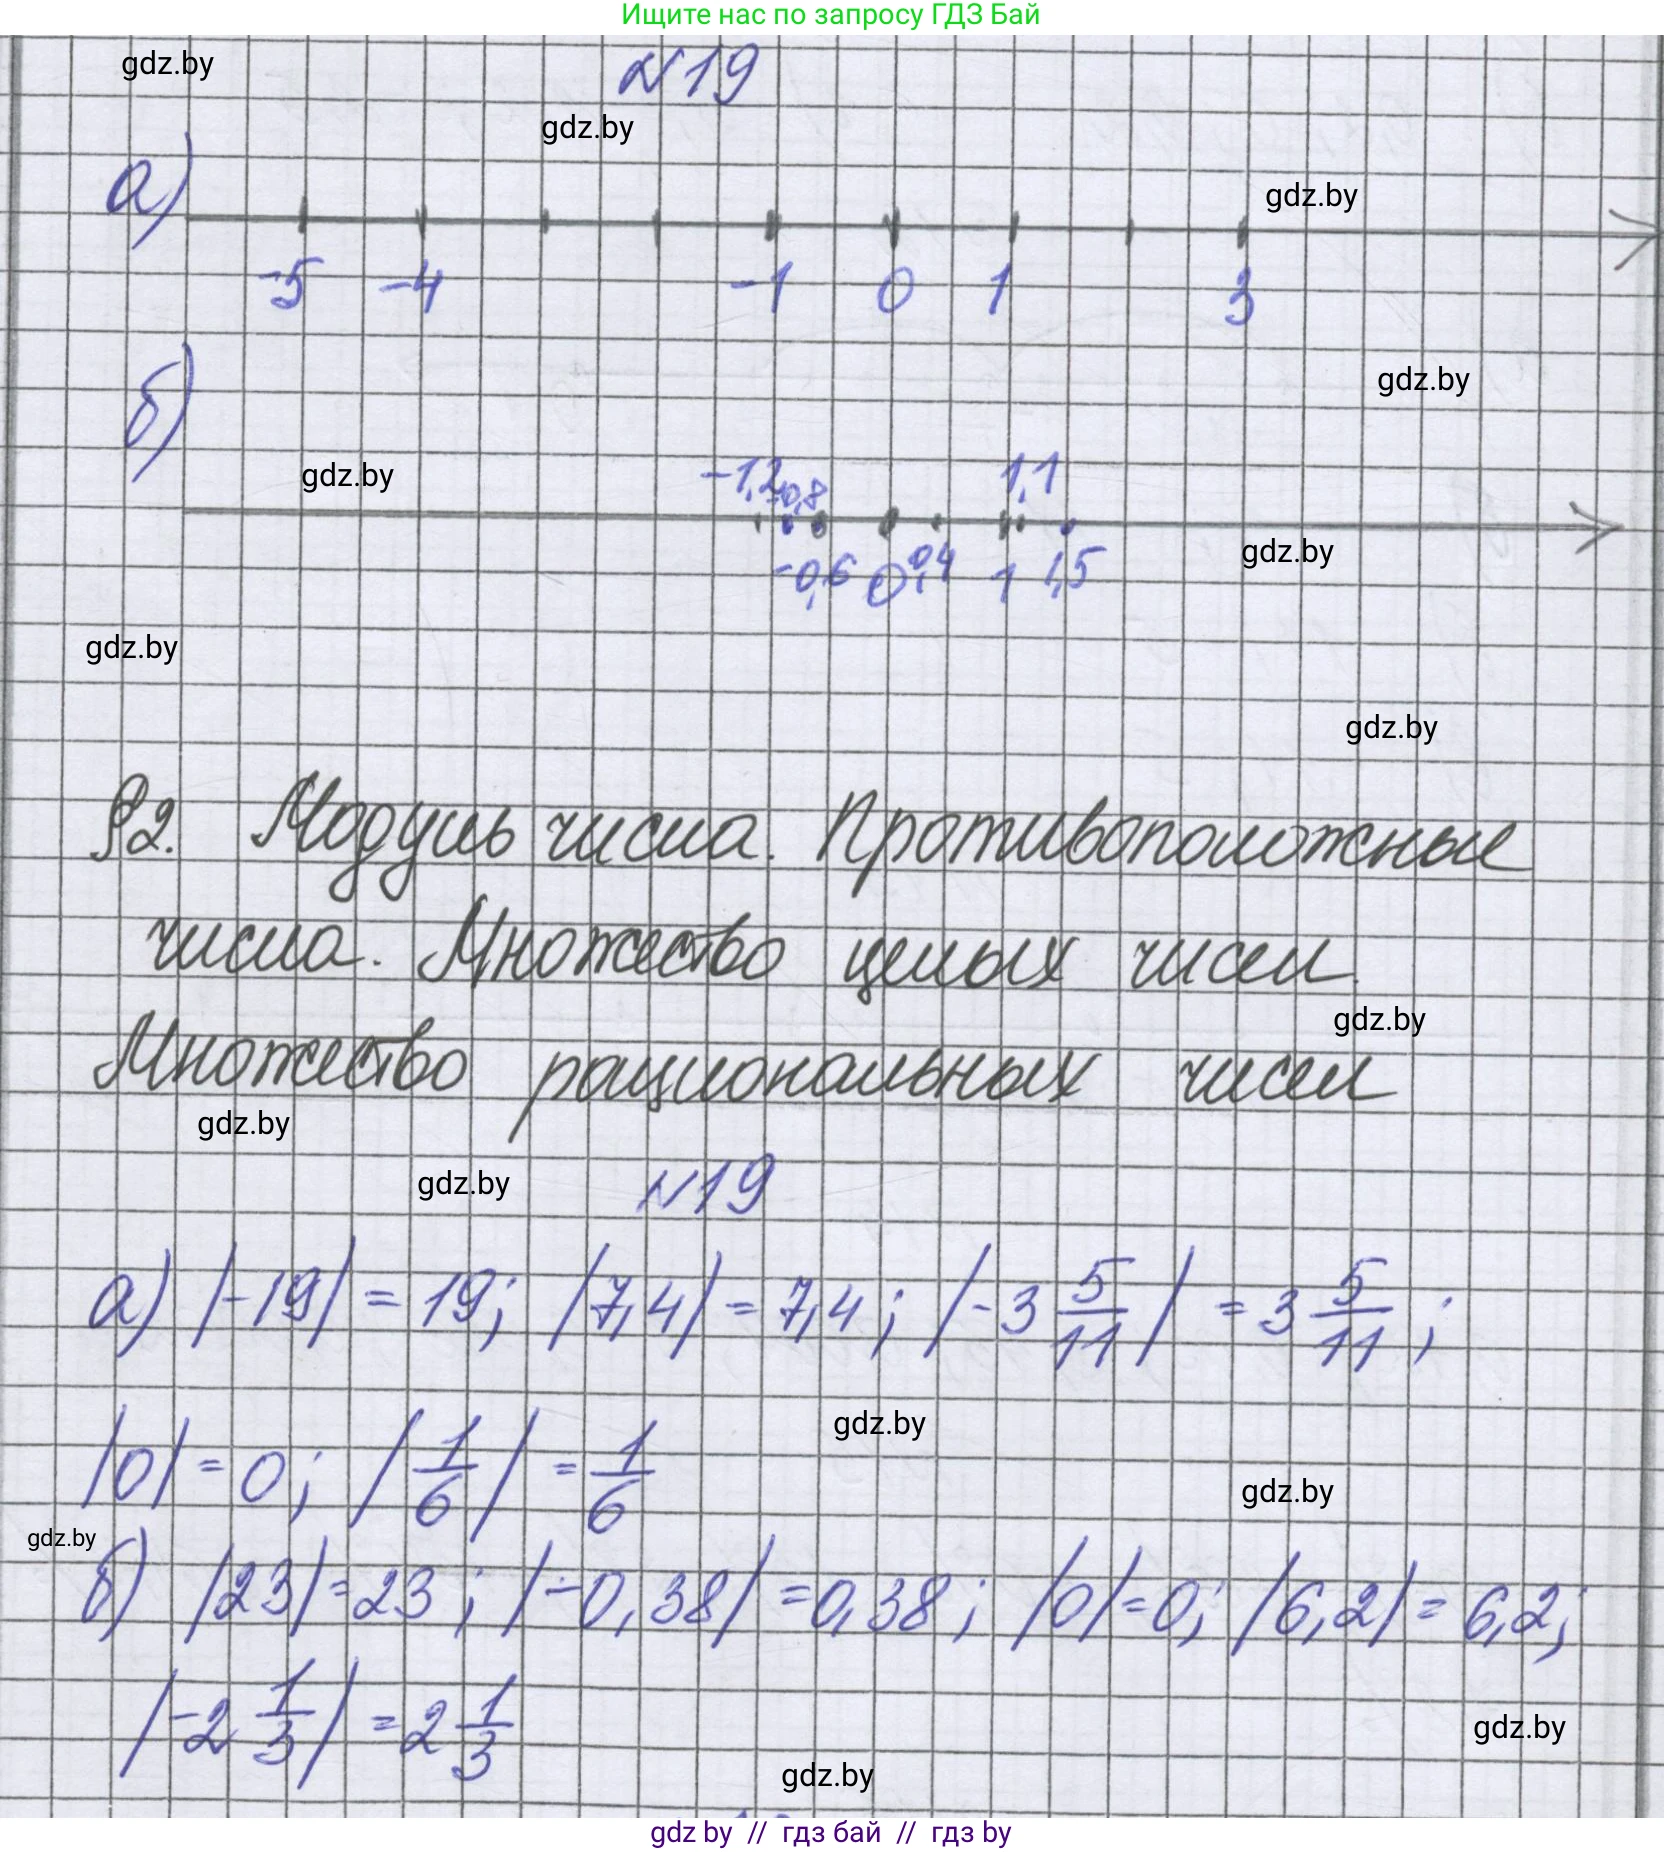 Ищите нас по запросу ГДЗ Бай
№19
gdz.by
gdz.by
а)
gdz.by
-5 -4 -1 0 1 3
gdz.by
б)
gdz.by
-1,2 -0,8 1,1
-0,6 0 0,4 1 1,5
gdz.by
gdz.by
gdz.by
§2. Модуль числа. Противоположные
числа. Множество целых чисел.
gdz.by
Множество рациональных чисел
gdz.by
gdz.by
№19
а) |-19| = 19; |7,4| = 7,4; |-3 5/11| = 3 5/11;
gdz.by
|0| = 0; |1/6| = 1/6
gdz.by
gdz.by
б) |23| = 23; |-0,38| = 0,38; |0| = 0; |6,2| = 6,2;
|-2 1/3| = 2 1/3
gdz.by
gdz.by
gdz by // гдз бай // гдз by